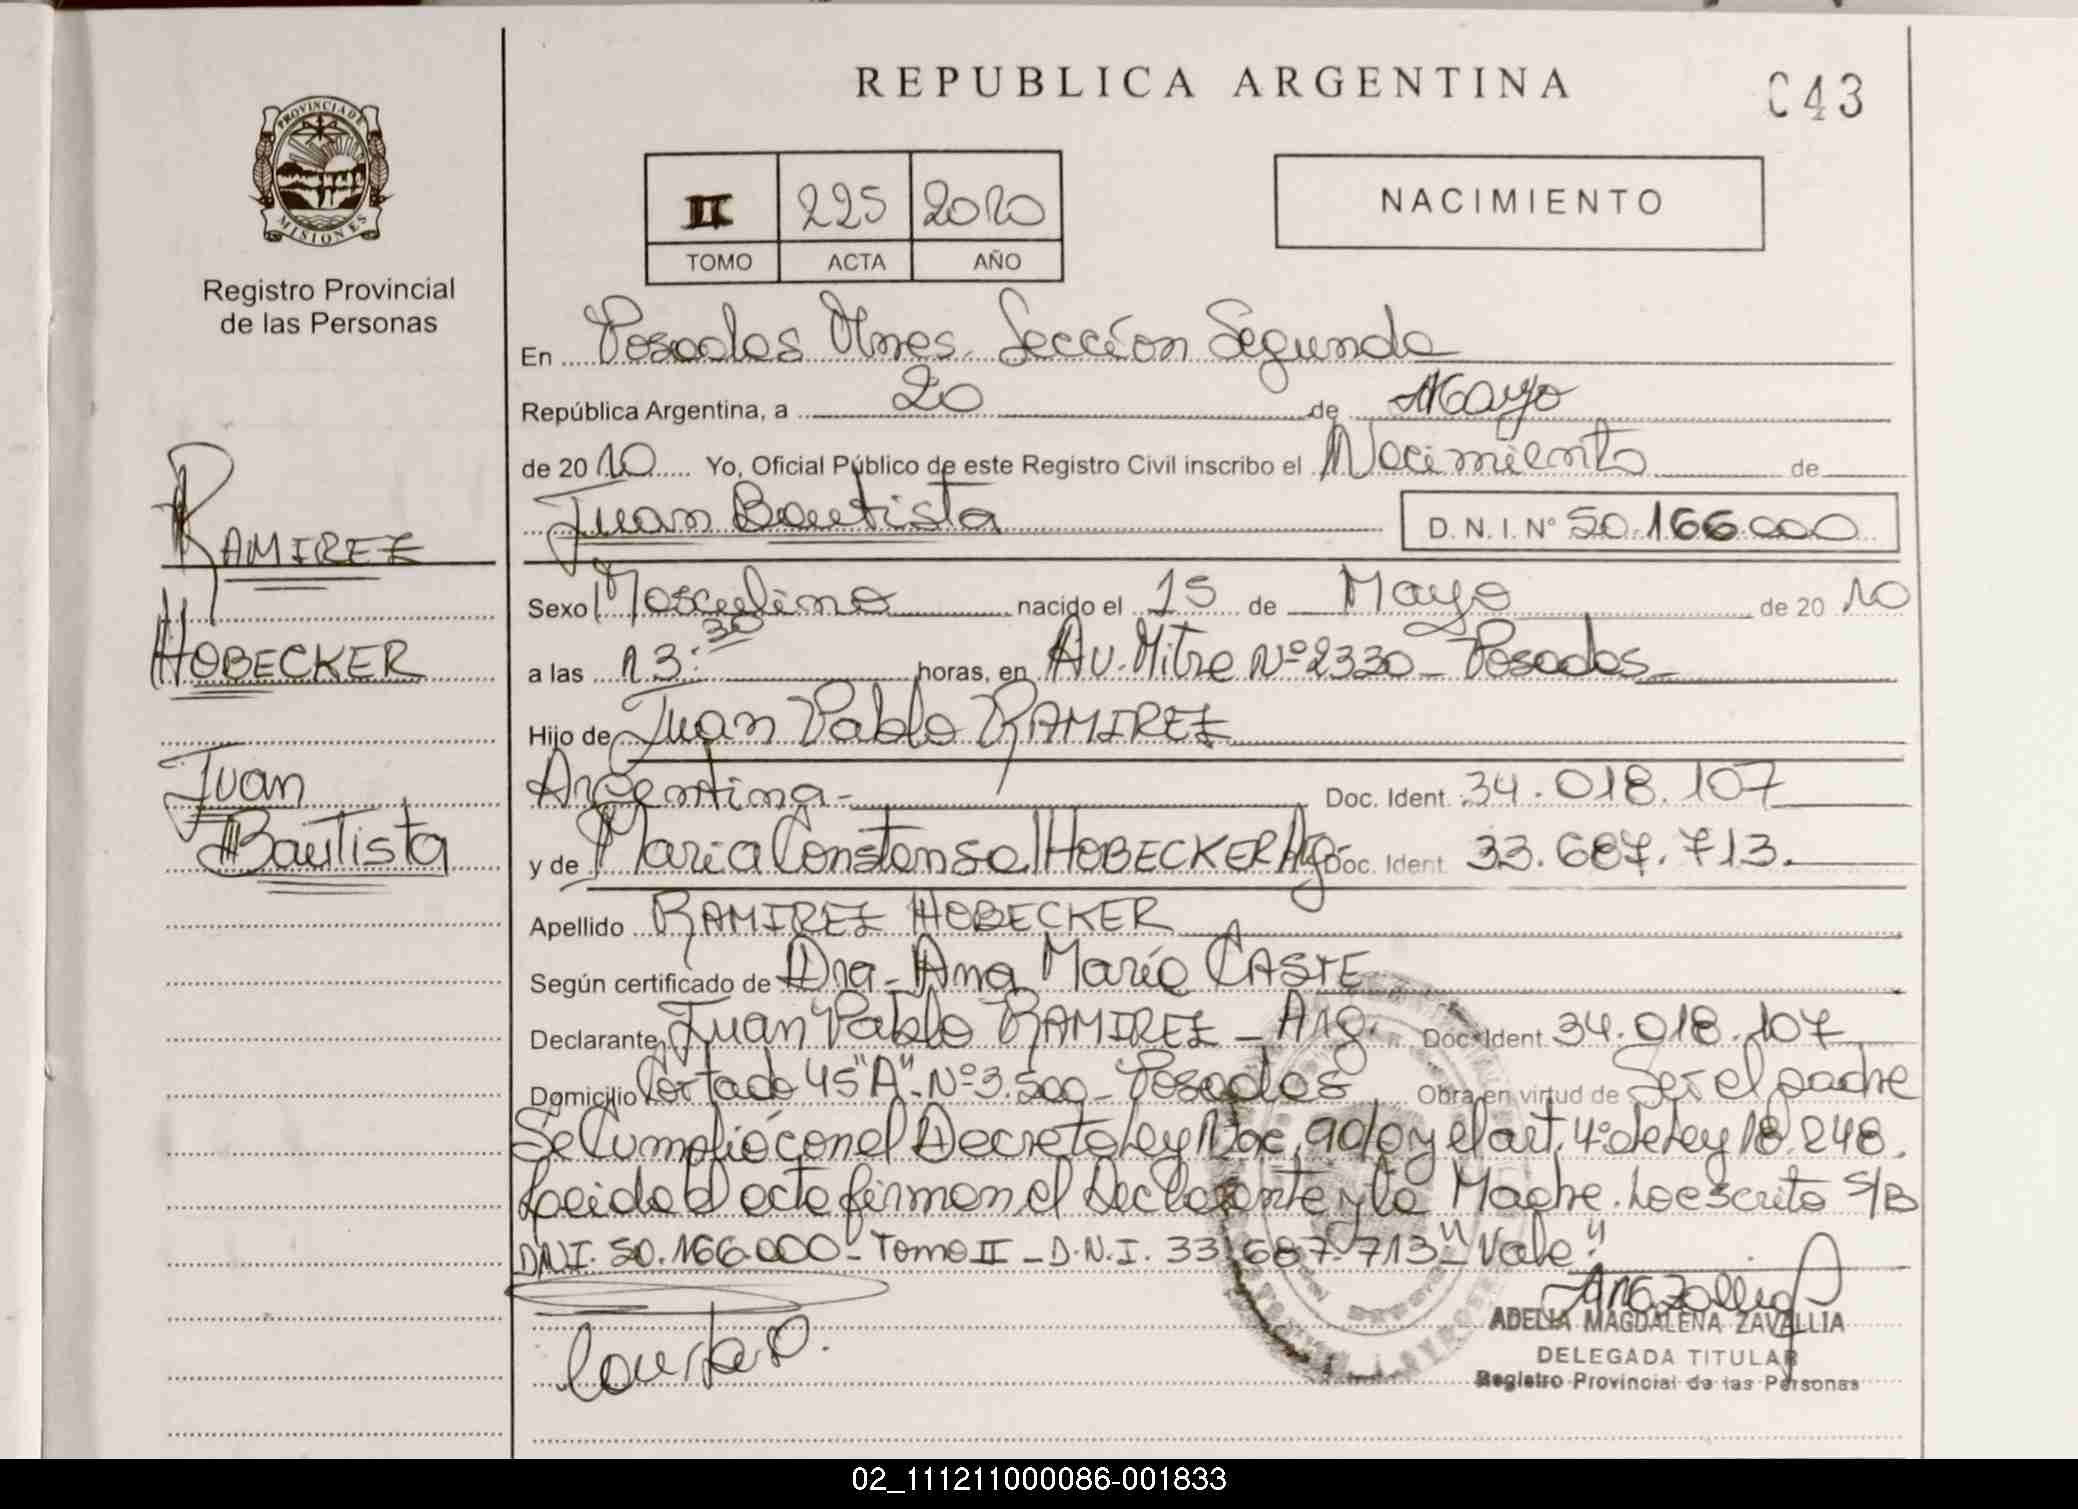 REPUBLICA ARGENTINA
C43
PROVINCIA DE
MISIONES
Registro Provincial
de las Personas
II 225 2010
TOMO ACTA AÑO
NACIMIENTO
En Posadas Mnes. Sección Segunda
República Argentina, a 20 de Mayo
de 2010 Yo, Oficial Público de este Registro Civil inscribo el Nacimiento de
Juan Bautista D. N. I. Nº 50.166.000
RAMIREZ
HOBECKER
Juan
Bautista
Sexo Masculino nacido el 15 de Mayo de 20 10
a las 13:30 horas, en Av. Mitre Nº 2330 - Posadas
Hijo de Juan Pablo RAMIREZ
Argentina - Doc. Ident. 34.018.107
y de María Constansa HOBECKER Arg. Doc. Ident. 33.687.713.
Apellido RAMIREZ HOBECKER
Según certificado de Dra. Ana María CASTE
Declarante Juan Pablo RAMIREZ - Arg. Doc. Ident. 34.018.107
Domicilio Cortado 45 "A" - Nº 3.500 - Posadas Obra en virtud de Ser el padre
Se Cumplió con el Decreto Ley Nac. 90/0 y el art. 4º de Ley 18.248.
Leida el acta firman el Declarante y la Madre. Lo escrito S/B
D.N.I. 50.166.000 - Tomo II - D.N.I. 33.687.713 "Vale"
ADELIA MAGDALENA ZAVALLIA
DELEGADA TITULAR
Registro Provincial de las Personas
02_111211000086-001833